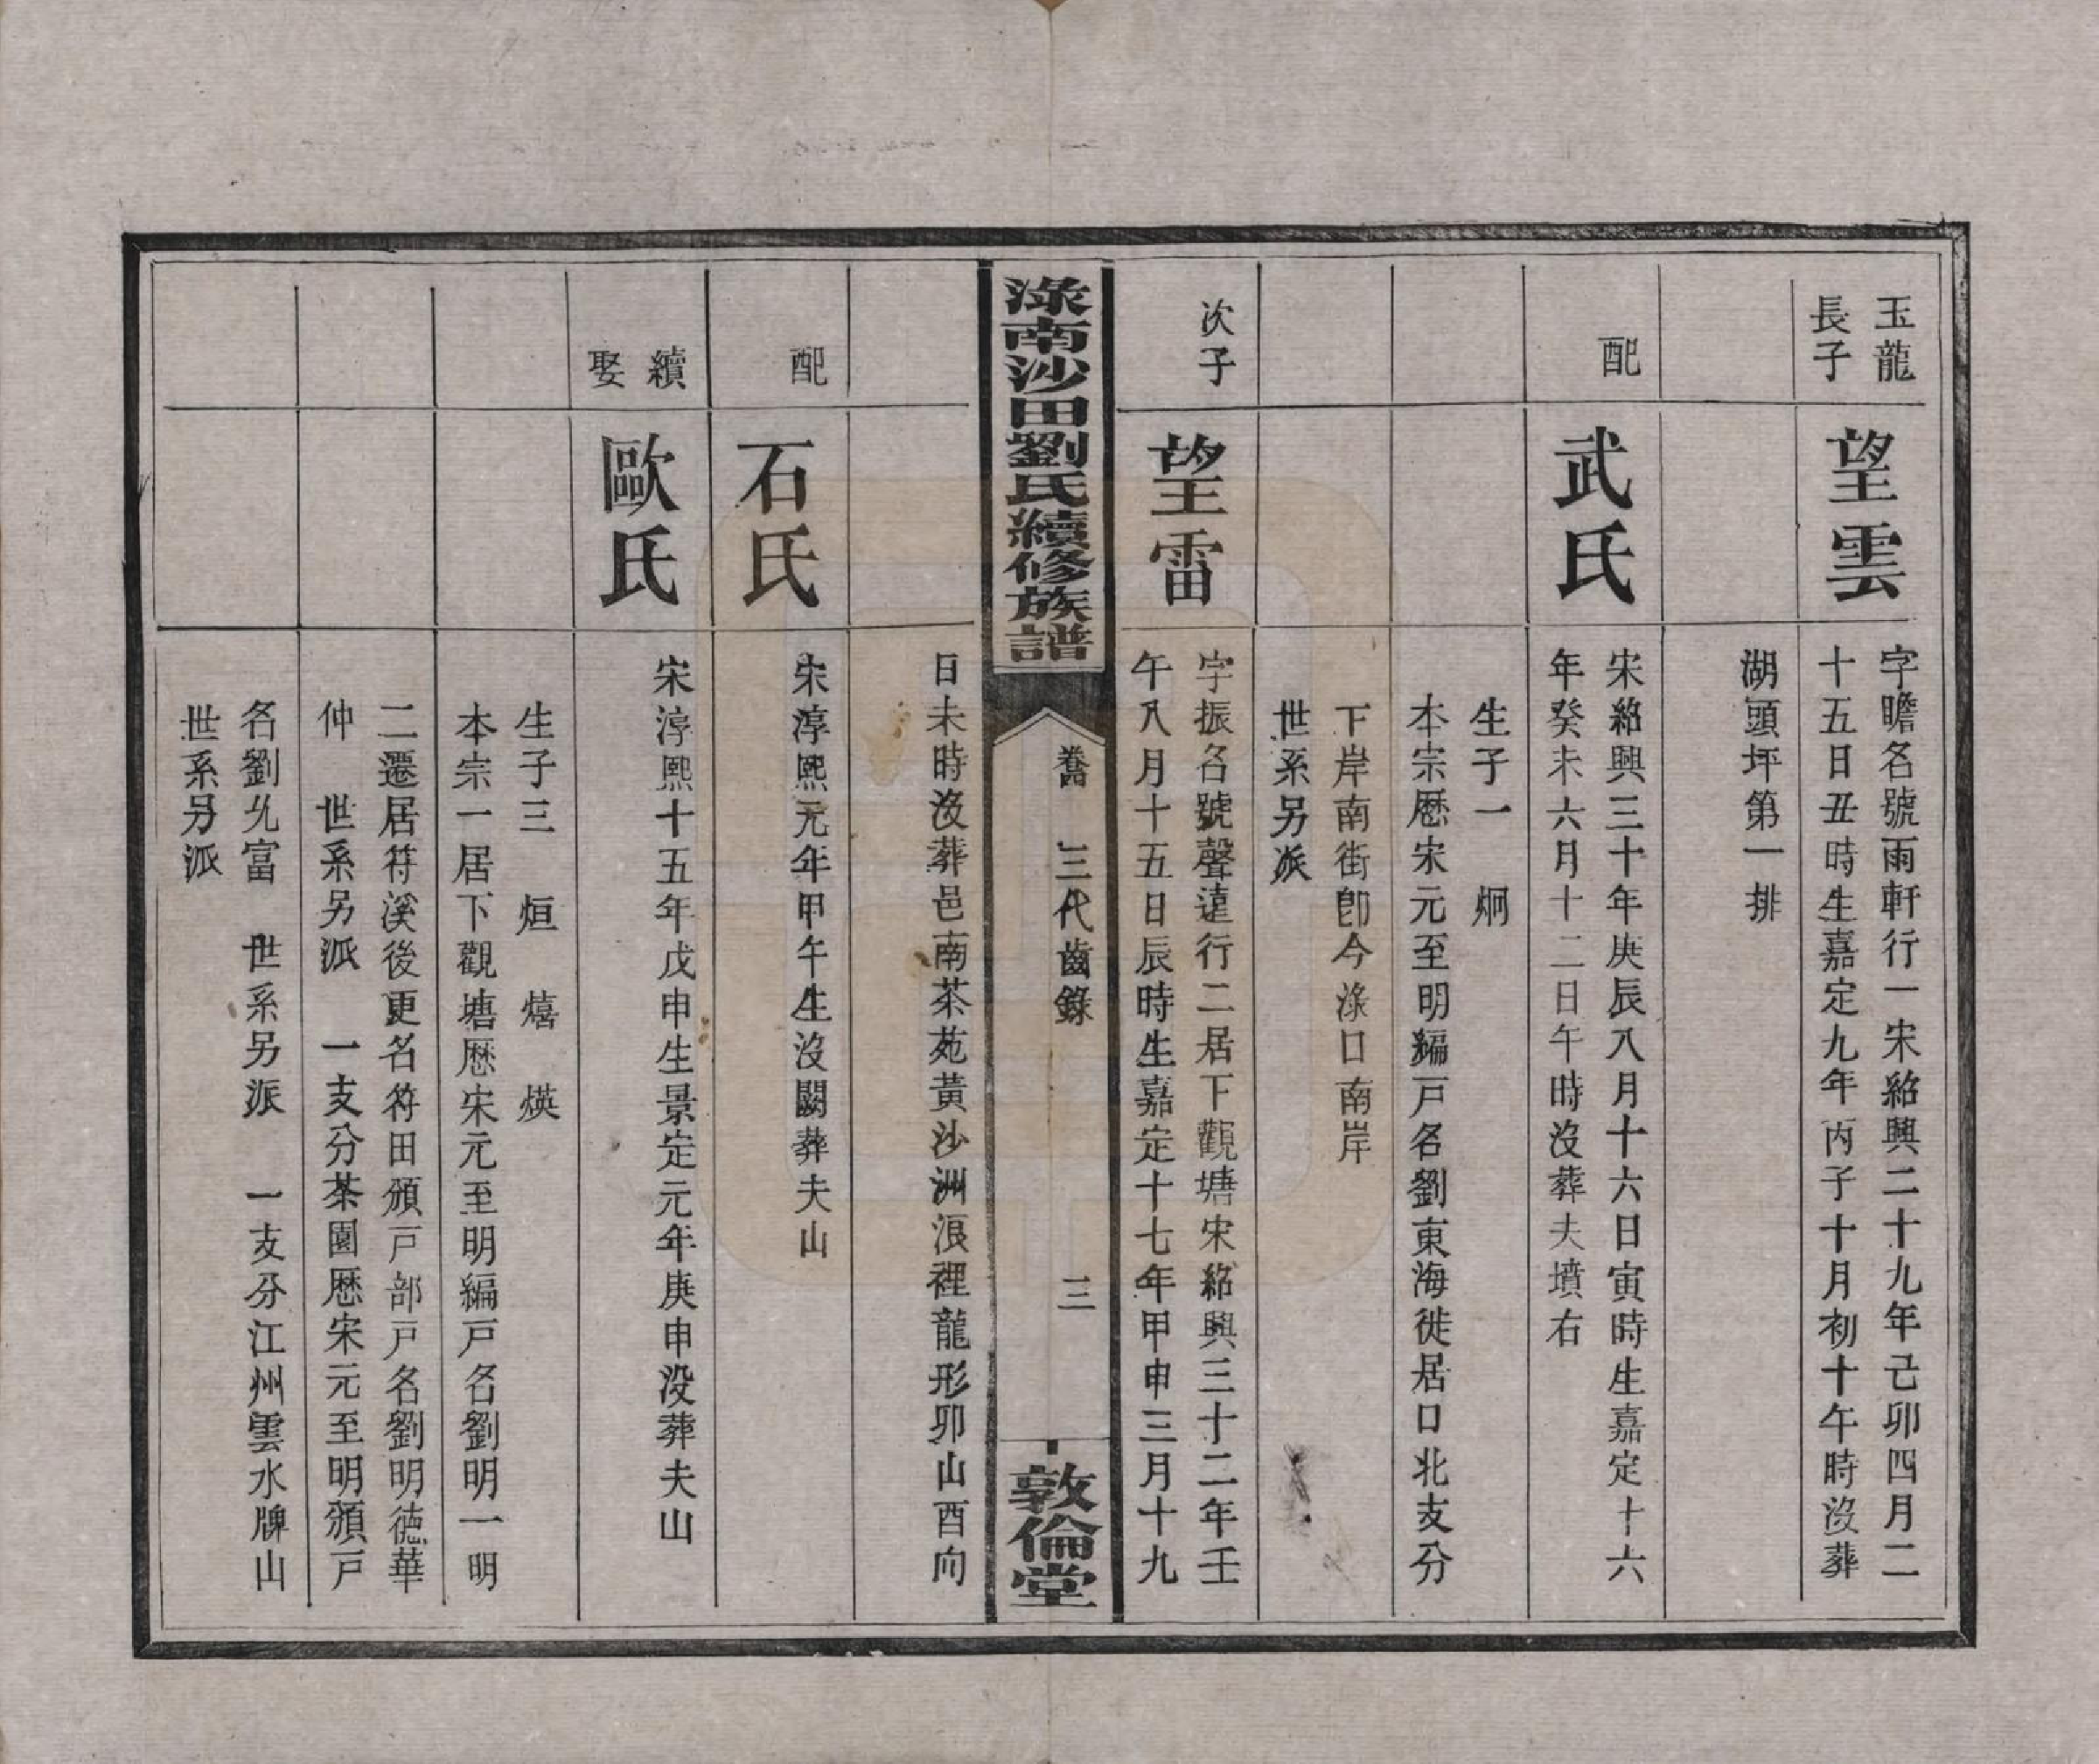 玉龍
長子
望雲
字瞻名號雨軒行一宋紹興二十九年己卯四月二
十五日丑時生嘉定九年丙子十月初十午時沒葬
湖頭坪第一排
配
武氏
宋紹興三十年庚辰八月十六日寅時生嘉定十六
年癸未六月十二日午時沒葬夫墳右
生子一 炯
本宗歷宋元至明編戸名劉東海徙居口北支分
下岸南街卽今淥口南岸
世系另派
次子
望雷
字振名號聲遠行二居下觀塘宋紹興三十二年壬
午八月十五日辰時生嘉定十七年甲申三月十九
淥南沙田劉氏續修族譜
三代齒錄
三
敦倫堂
日未時沒葬邑南茶苑黃沙洲浪裡龍形卯山酉向
配
石氏
宋淳熙元年甲午生沒闕葬夫山
續
娶
歐氏
宋淳熙十五年戊申生景定元年庚申没葬夫山
生子三 烜 熺 煐
本宗一居下觀塘歷宋元至明編戸名劉明一明
二遷居符溪後更名符田頒戸部戸名劉明德華
仲 世系另派 一支分茶園歷宋元至明頒戸
名劉允富 世系另派 一支分江州雲水牌山
世系另派